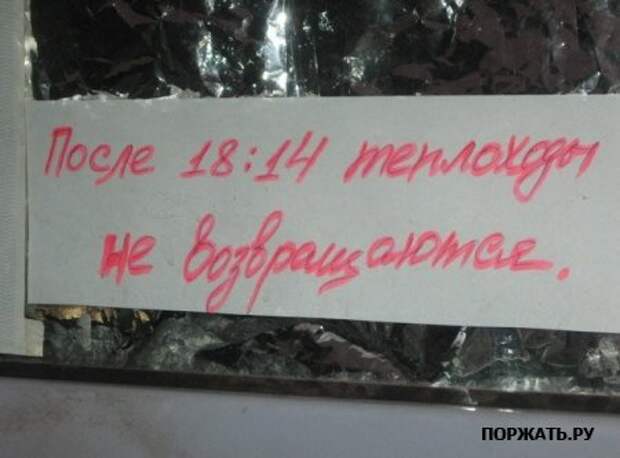 После 18:14 теплоходы
не возвращаются.
ПОРЖАТЬ.РУ